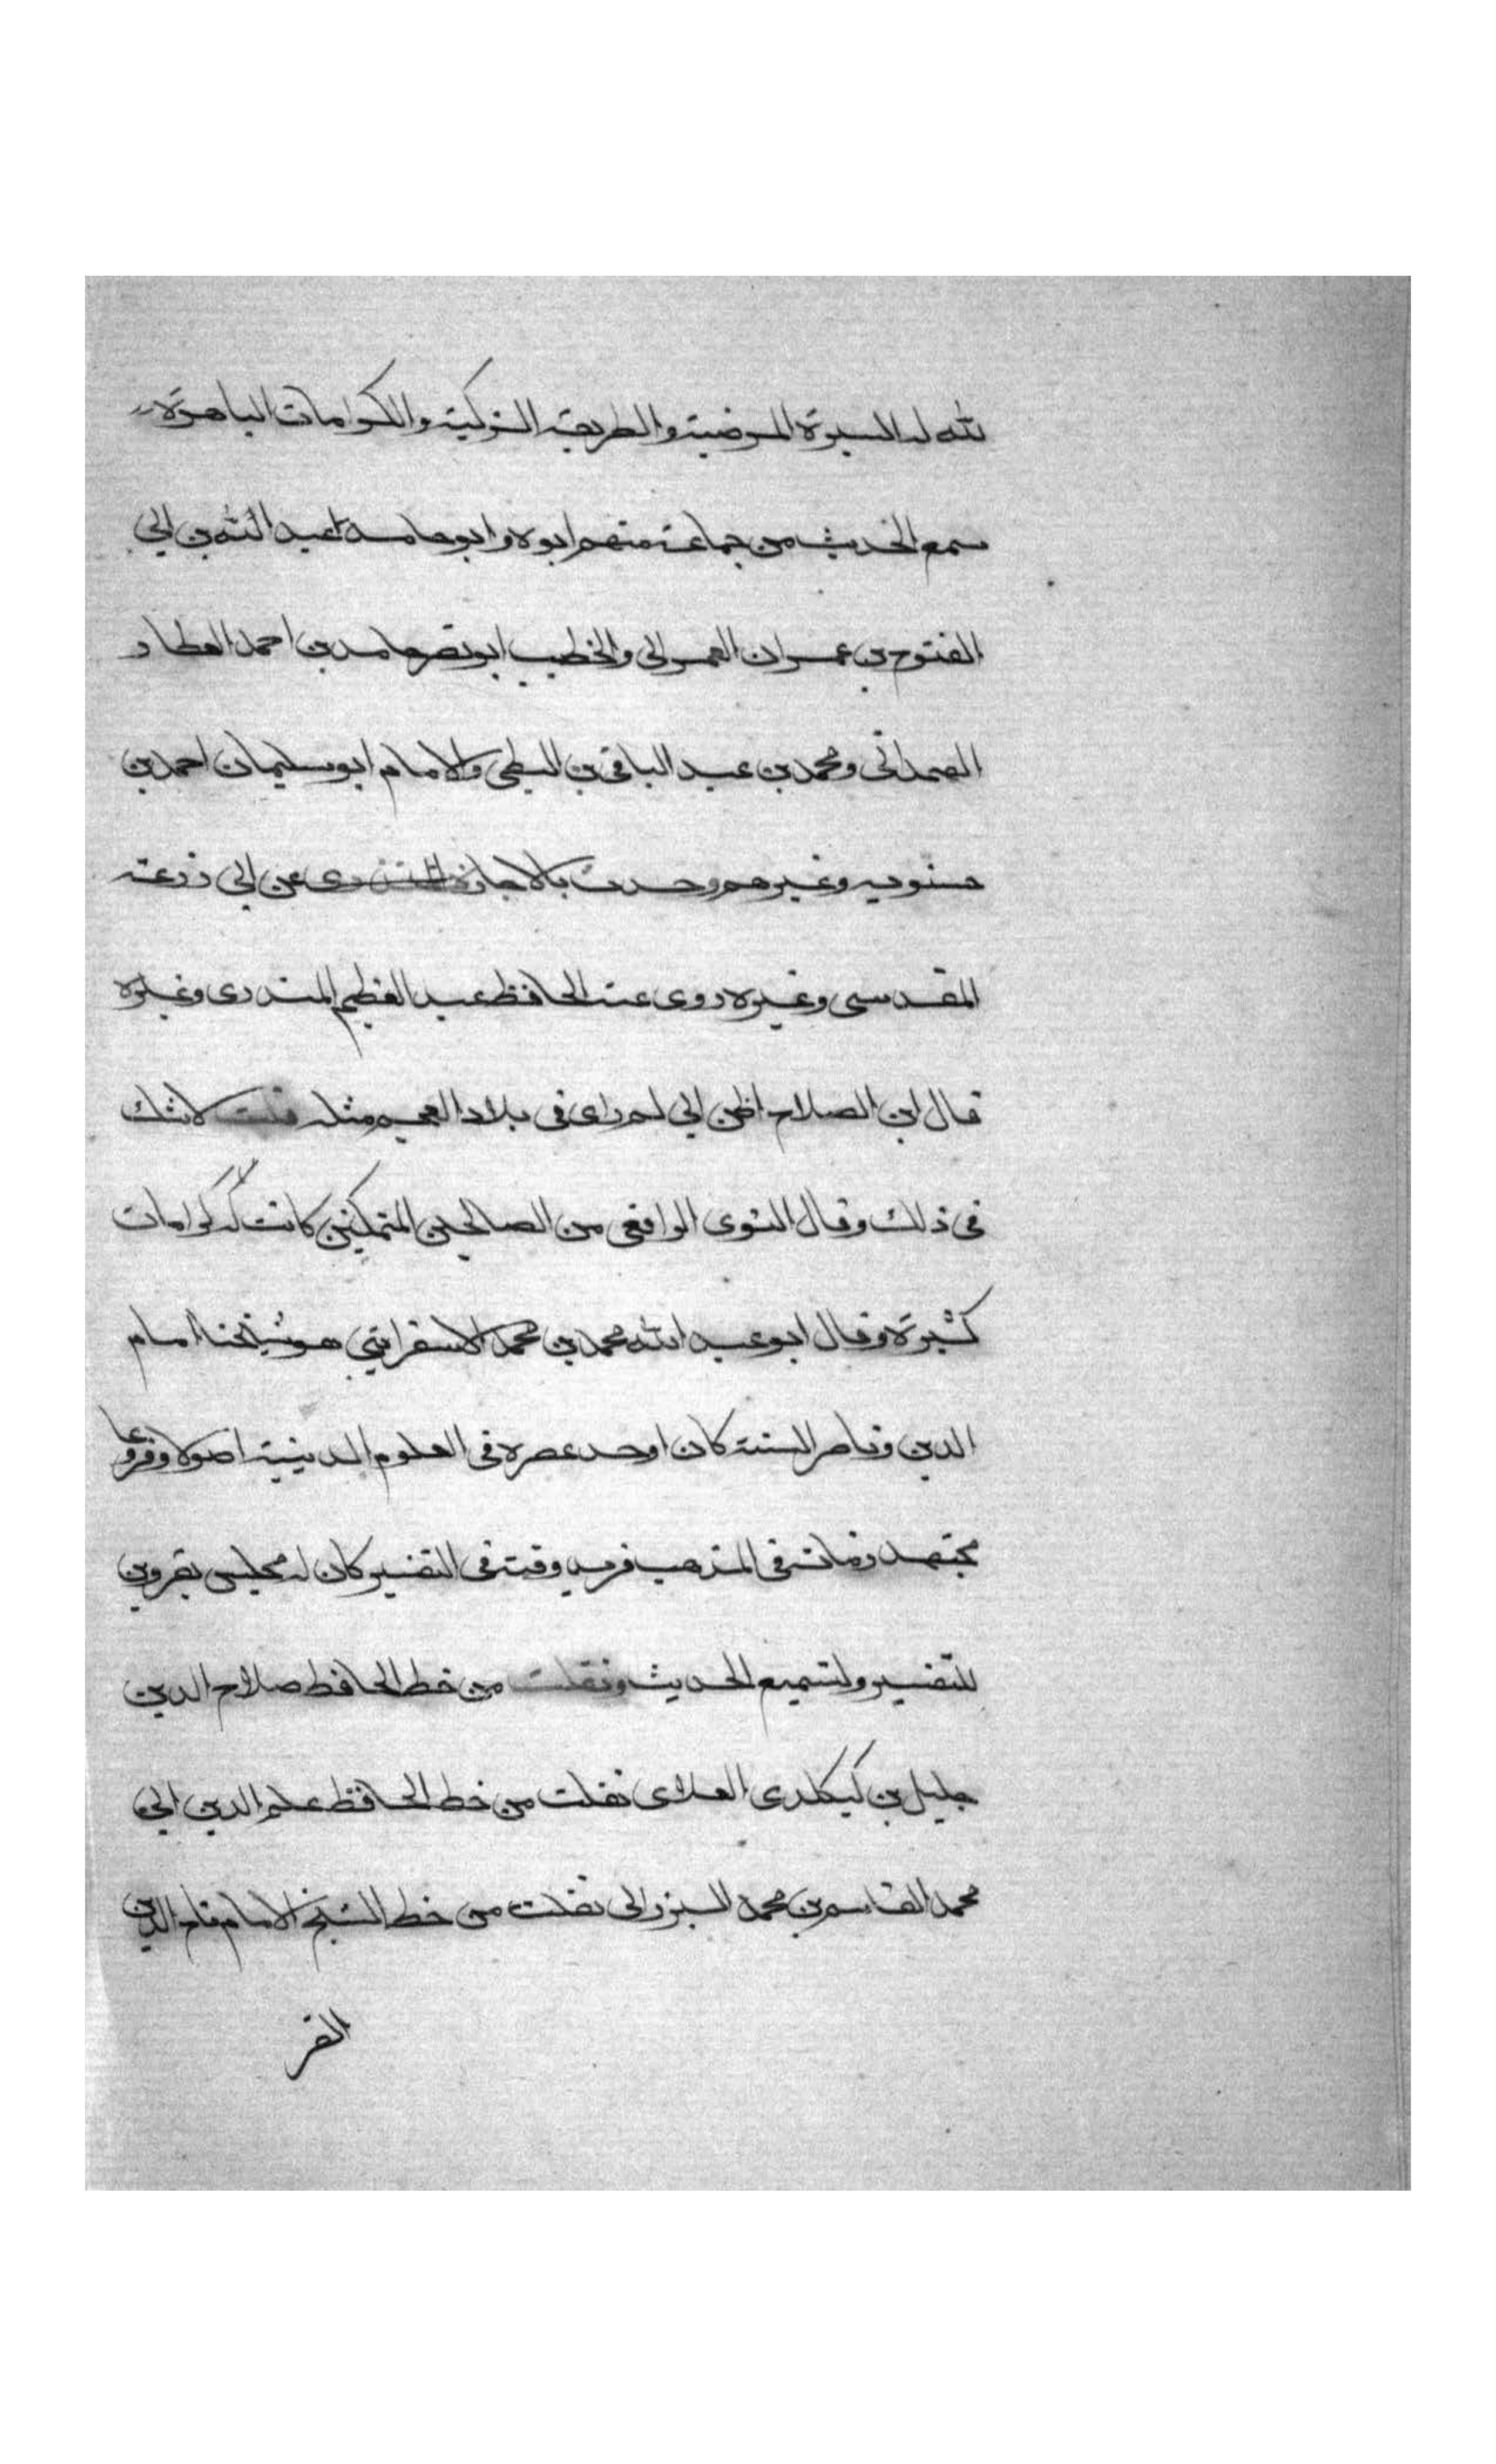 لله له السيرة المرضية والطريقة الزكية والكرامات الباهرة
سمع الحديث من جماعة منهم ابوه وابو حامد عبد الله بن ابي
الفتوح بن عمران العمراني والخطيب ابو نصر حامد بن احمد العطار
الهمداني ومحمد بن عبد الباقي بن البطي والامام ابو سليمان احمد بن
حسنويه وغيرهم وحدث بالاجازة عن ابي زرعة
المقدسي وغيره روى عنه الحافظ عبد العظيم المنذري وغيره
قال ابن الصلاح اظن اني لم راى في بلاد العجم مثله قلت لا شك
في ذلك وقال النووي الرافعي من الصالحين المتمكنين كانت له كرامات
كثيرة وقال ابو عبد الله محمد بن محمد الاسفرايني هو شيخنا امام
الدين وناصر السنة كان اوحد عصره في العلوم الدينية اصولا وفروعا
مجتهد زمانه في المذهب فريد وقته في التفسير كان له مجلس بقزوين
للتفسير ولتسميع الحديث ونقلت من خط الحافظ صلاح الدين
خليل بن كيكلدى العلاى نقلت من خط الحافظ علم الدين ابي
محمد القاسم بن محمد البرزالى نقلت من خط الشيخ الامام تاج الدين
الفر